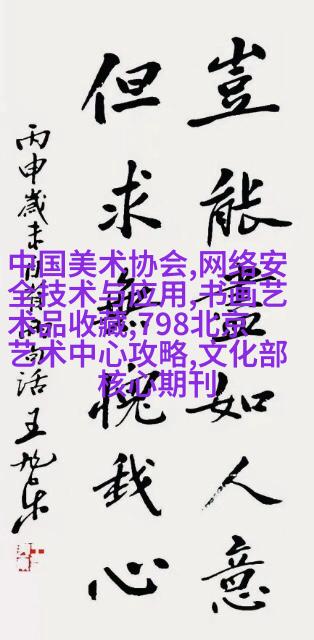 豈能盡如人意
但求無愧我心
丙申歲末自省两句话 王旭东
中国美术协会,网络安
全技术与应用,书画艺
术品收藏,798北京
艺术中心攻略,文化部
核心期刊